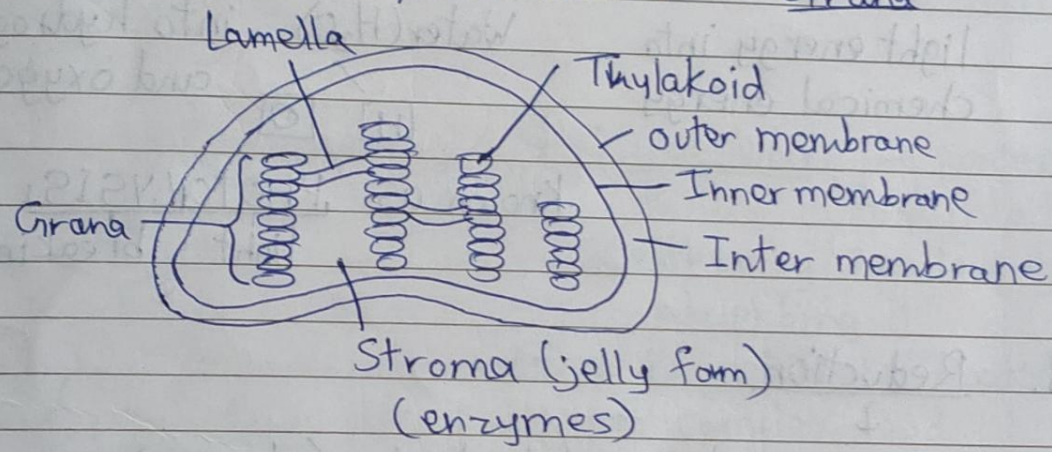 Lamella
Thylakoid
outer membrane
Inner membrane
Grana
Inter membrane
Stroma (jelly form)
(enzymes)